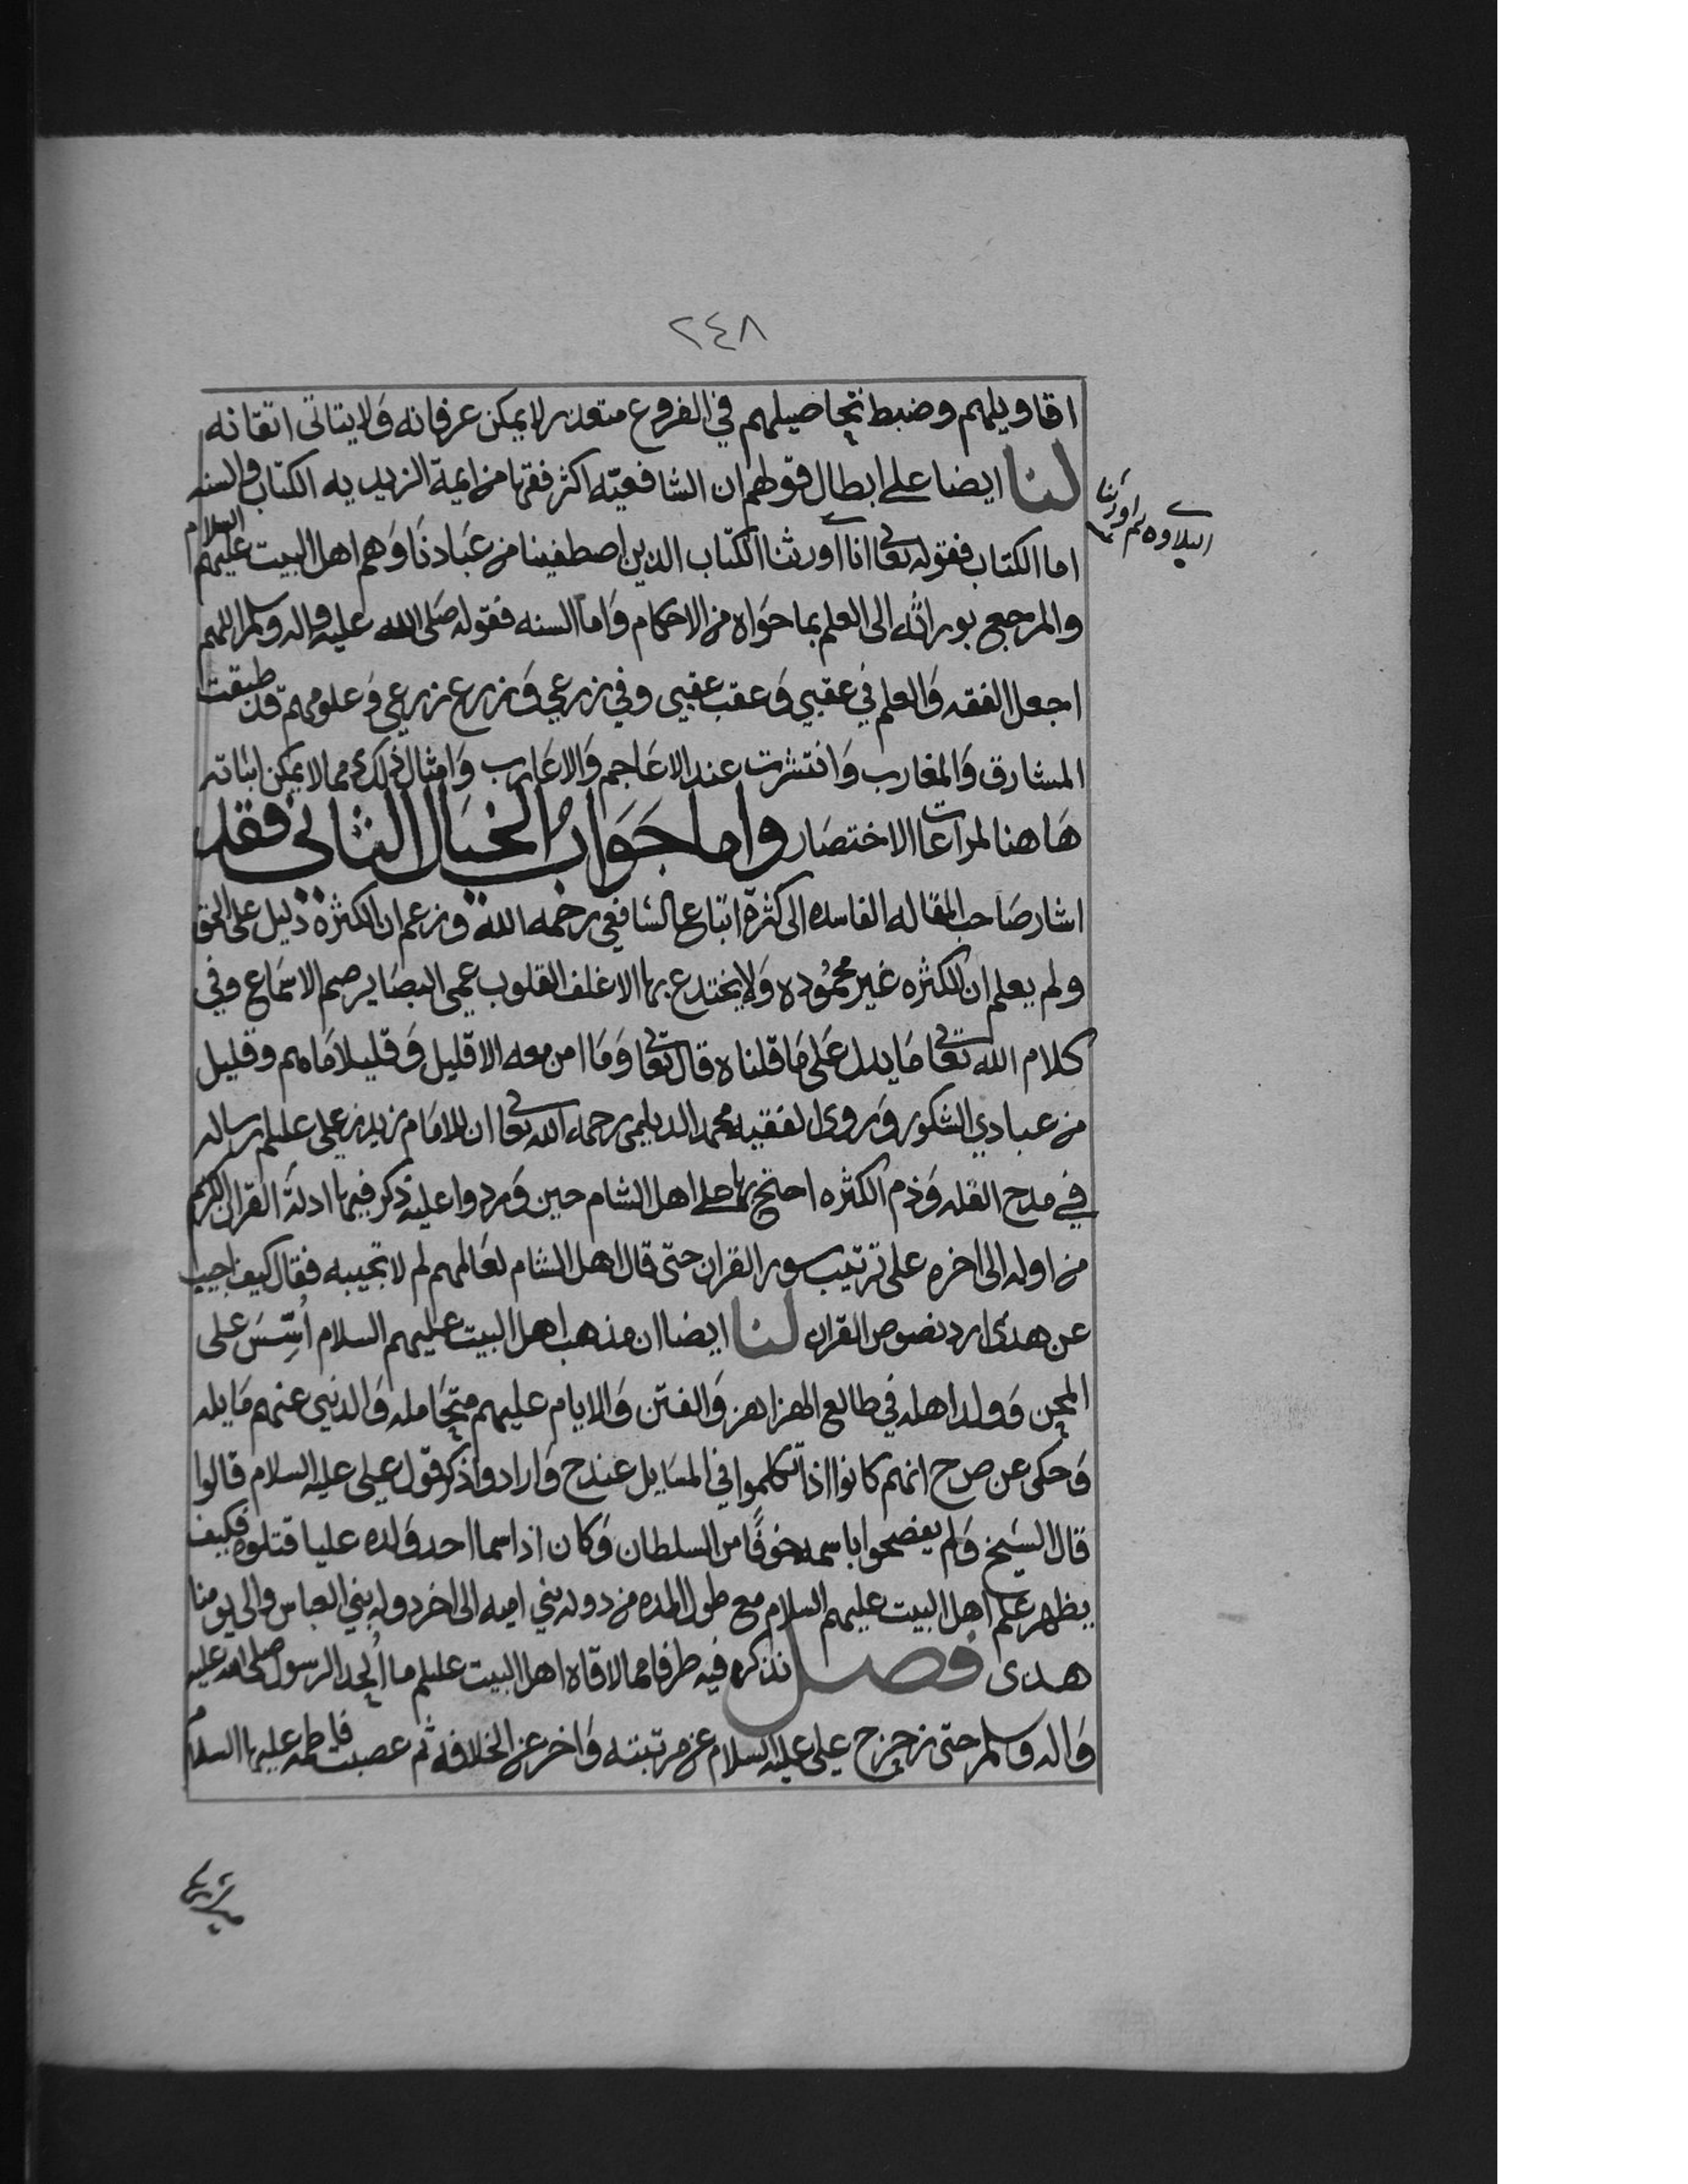 ٢٤٨
اقاويلهم وضبط تحاصيلهم في الفروع متعذر لا يمكن عرفانه ولا يتاتى اتقانه
لنا ايضا على ابطال قولهم ان الشافعيّه اكثر فقها من ايمة الزيديه الكتاب والسنه
اما الكتاب فقوله تعالى انا اورثنا الكتاب الذين اصطفينا من عبادنا وهم اهل البيت عليهم السلام
التلاوه ثم اورثنا
والمرجع بوراثه الى العلم بما حواه من الاحكام واما السنه فقوله صلى الله عليه واله وسلم اللهم
اجعل الفقه والعلم في عقبي وعقب عقبي وفي زرعي وزرع زرعي وعلومهم قد طبقت
المشارق والمغارب وانتشرت عند الاعاجم والاعارب وامثال ذلك مما لا يمكن اثباته
هاهنا لمراعات الاختصار واما جَوَابُ الخيال الثاني فقد
اشار صاحب المقاله الفاسده الى كثرة اتباع الشافعي رحمه الله وزعم ان الكثرة دليل على الحق
ولم يعلم ان الكثره غير محمُوده ولا يختدع بها الا غلف القلوب عمي البصاير صم الاسماع وفي
كلام الله تعالى ما يدل على ما قلناه قال تعالى وما امن معه الا قليل وقليلا ما هم وقليل
من عبادي الشكور وروى الفقيه محمد الديلمي رحمه الله تعالى ان للامام زيد بن علي عليلم رساله
في مدح القله وذم الكثره احتج بها على اهل الشام حين وردوا عليه ذكر فيها ادلة القران الكريم
من اوله الى اخره على ترتيب سور القران حتى قال اهل الشام لعالمهم لم لا تجيبه فقال كيف اجيب
عن هدى ارد نصوص القران لنا ايضا ان مذهب اهل البيت عليهم السلام أسِّسَ على
المحن وولد اهله في طالع الهزاهز والفتن والايام عليهم متحامله والدنيى عنهم مايله
وحكى عن ص ح انهم كانوا اذا تكلموا في المسايل عند ح وارادوا ذكر قول علي عليه السلام قالوا
قال الشيخ ولم يفصحوا باسمه خوفًا من السلطان وكان اذا سما احد ولده عليا قتلوه فكيف
يظهر علم اهل البيت عليهم السلام مع طول المده من دولة بني اميه الى اخر دولة بني العباس والى يومنا
هدى فصل نذكره فيه طرفا مما لاقاه اهل البيت عليلم ما أُلحد الرسول صلى الله عليه
واله وسلم حتى زحزح علي عليه السلام عن مرتبته واخر عن الخلافه ثم عصبت فاطمه عليها السلام